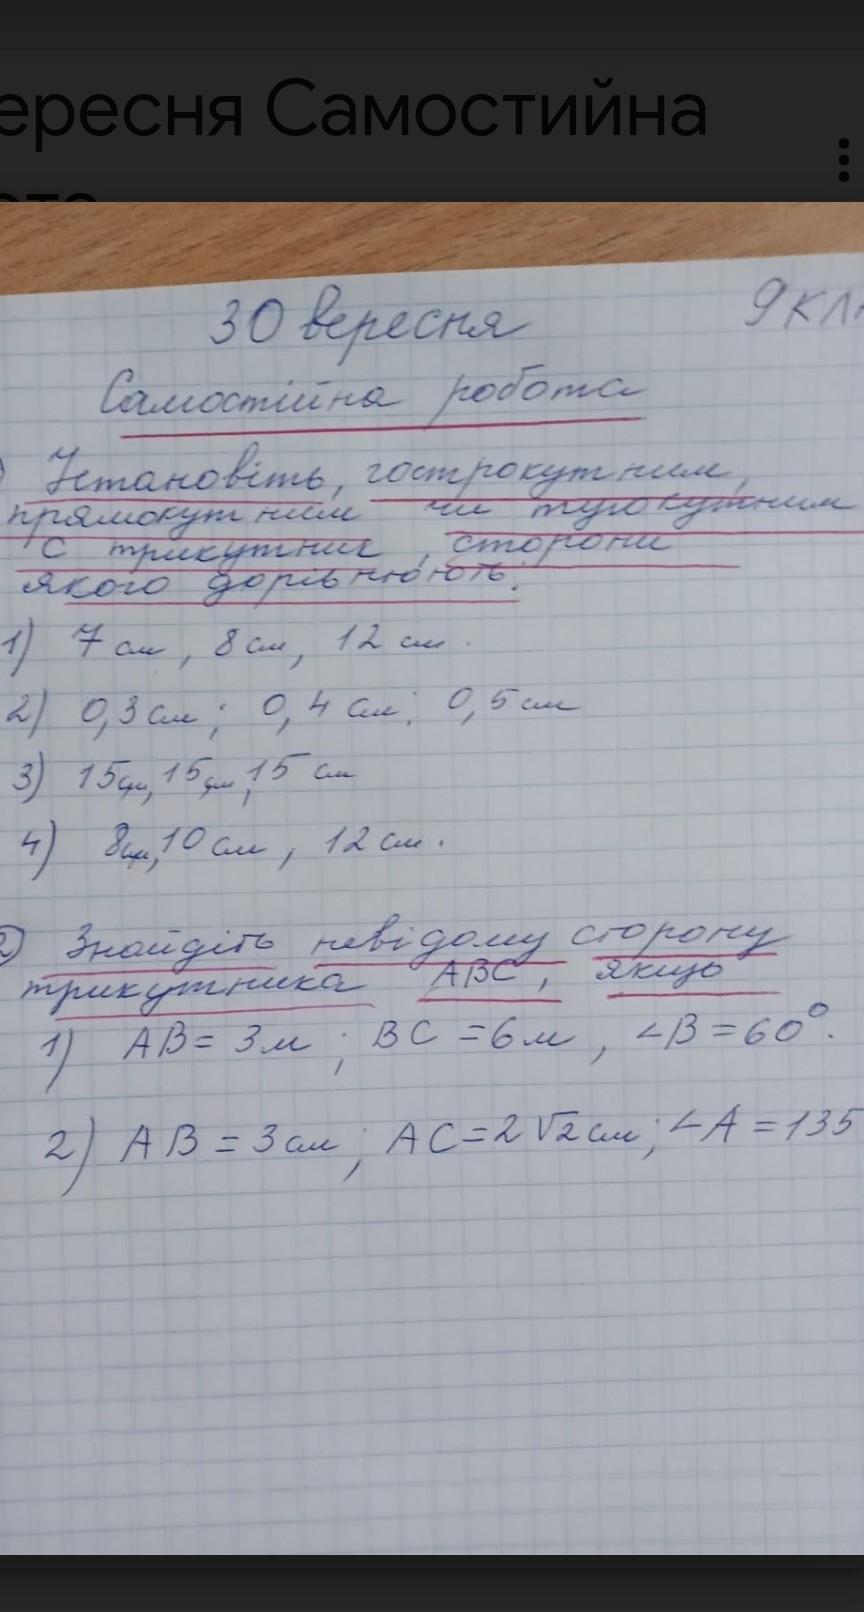 ересня Самостийна
30 вересня 9 кл
Самостійна робота
Установіть, гострокутним,
прямокутним чи тупокутним
є трикутник, сторони
якого дорівнюють:
1) 7 см, 8 см, 12 см.
2) 0,3 см; 0,4 см; 0,5 см
3) 15 см, 15 см, 15 см
4) 8 см, 10 см, 12 см.
2) Знайдіть невідому сторону
трикутника ABC, якщо
1) AB = 3 м; BC = 6 м, ∠B = 60°.
2) AB = 3 см; AC = 2√2 см; ∠A = 135